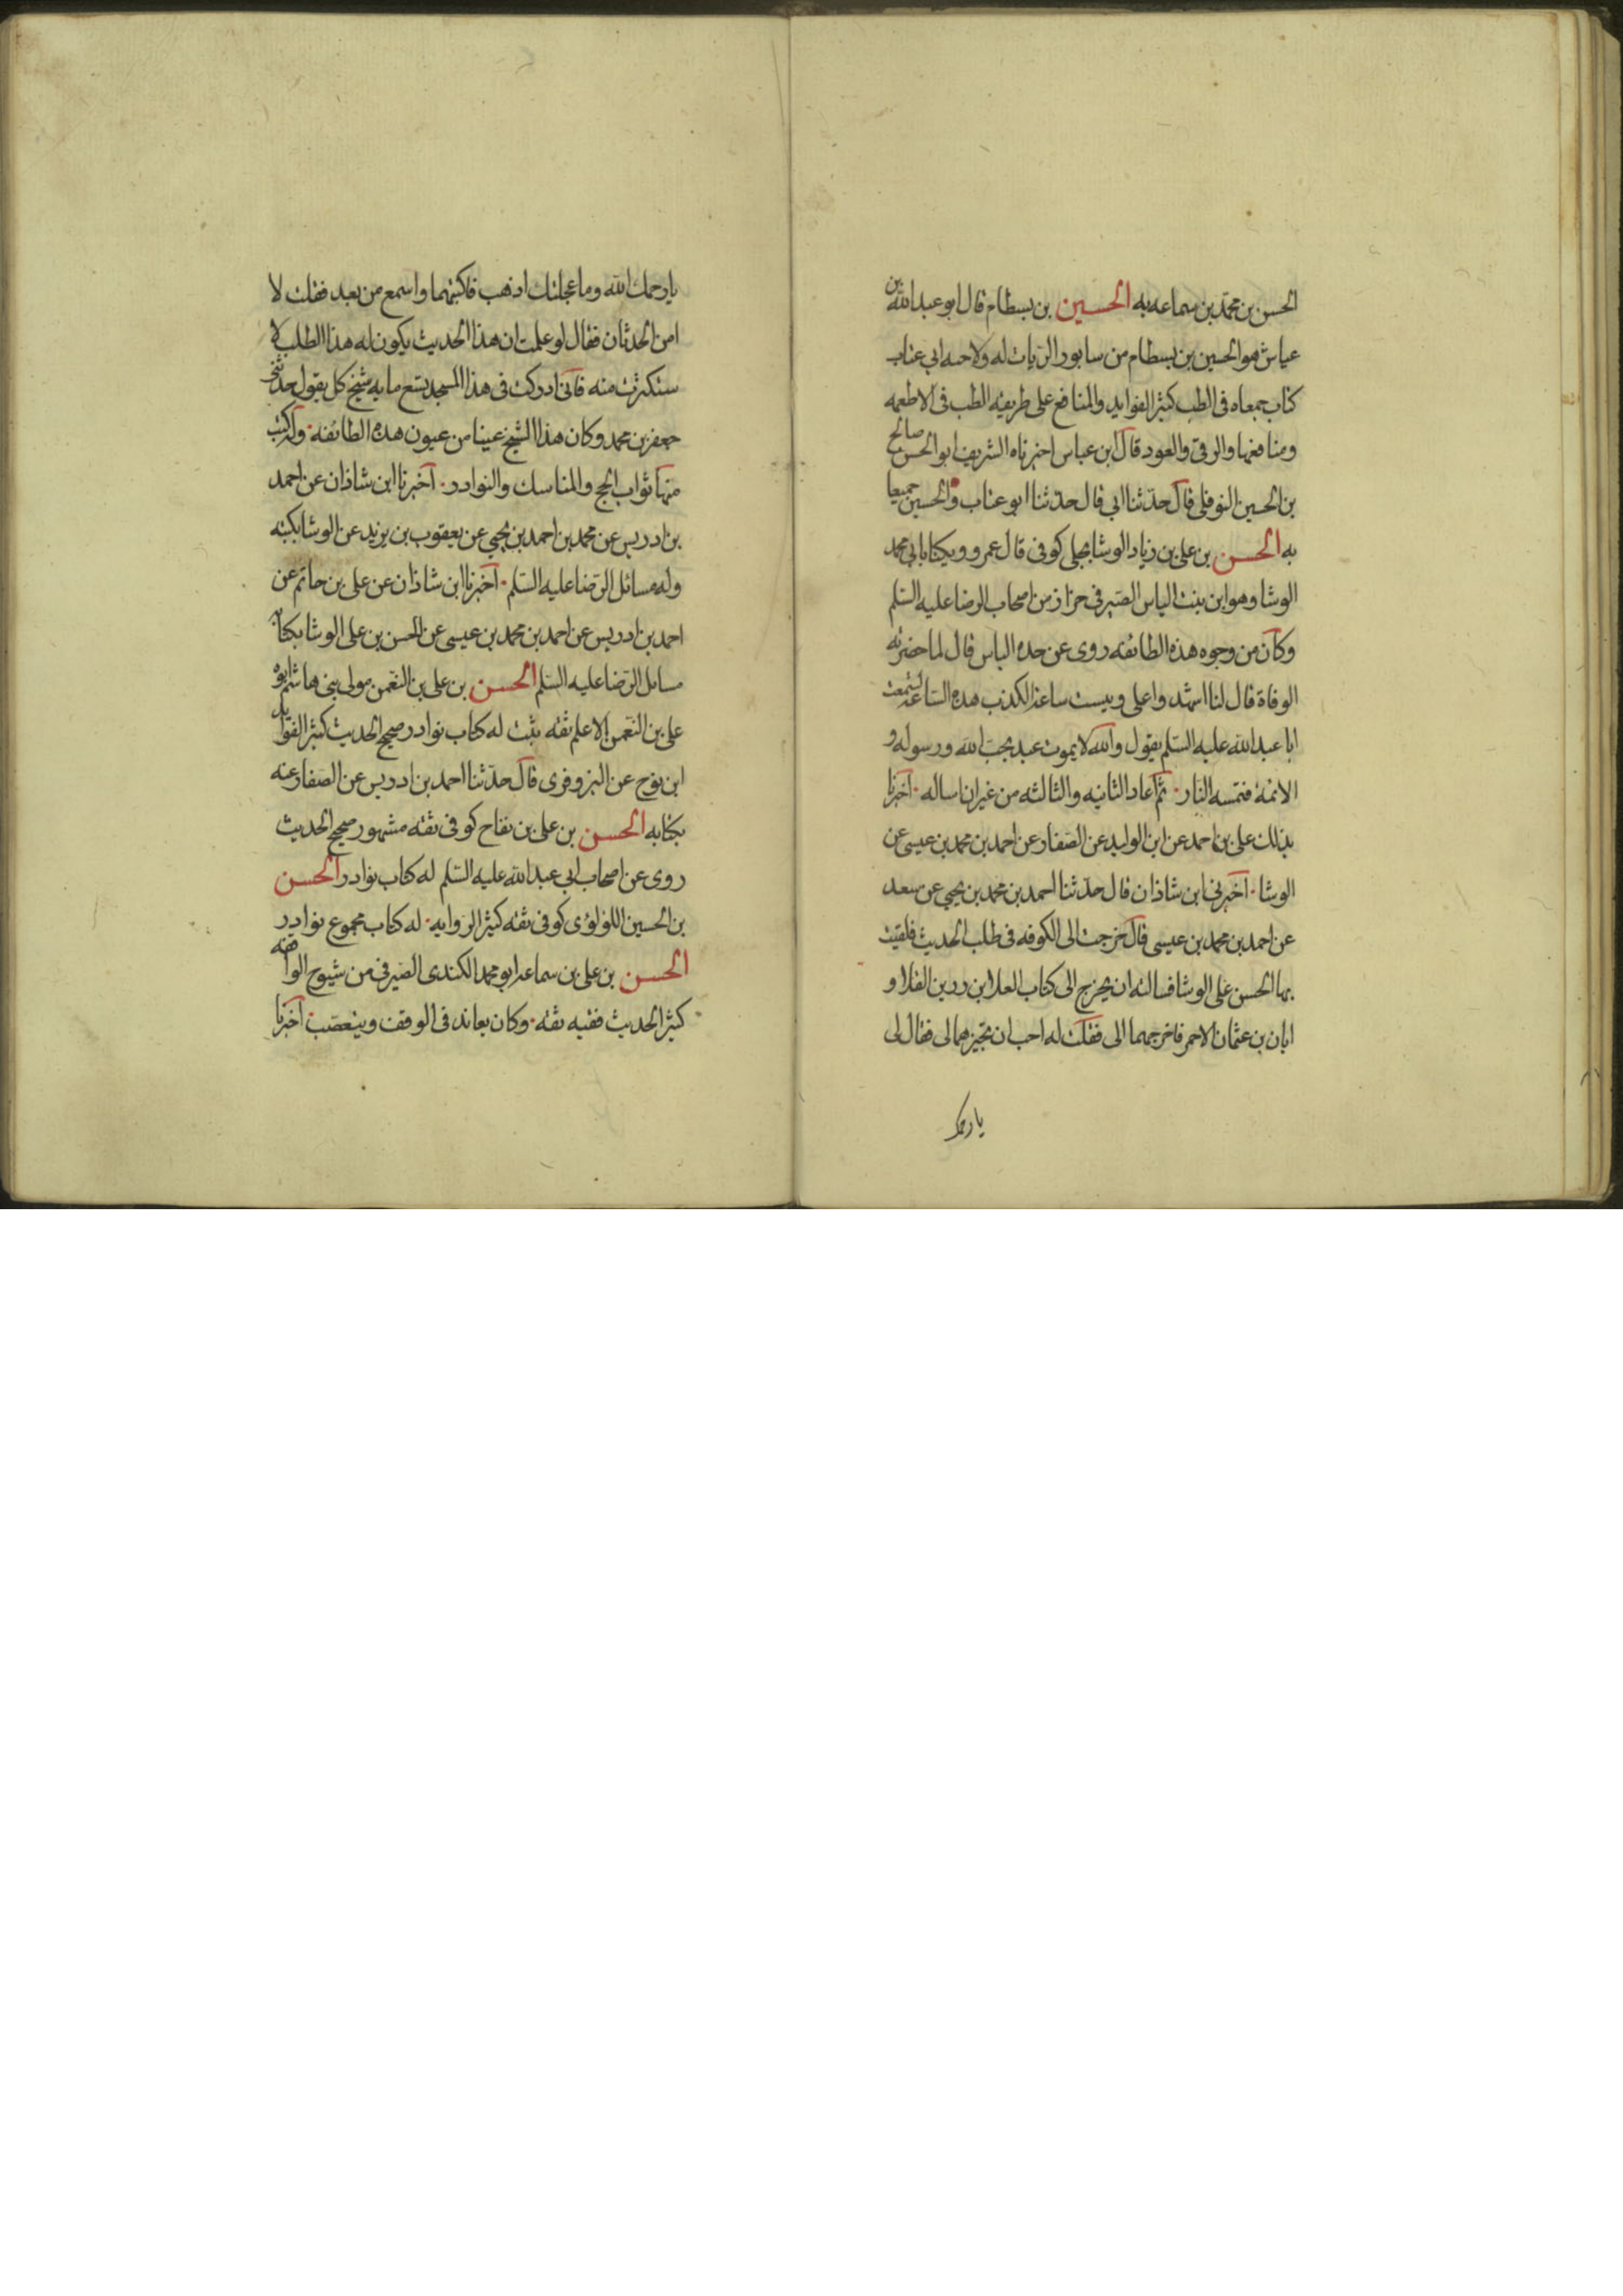 الحسن بن محمّد بن سماعه به الحسين بن بسطام قال ابو عبد الله بن
عياش هو الحسين بن بسطام من سابور الزيات له ولاخيه ابي عتاب
كتاب جمعاه فى الطب كثير الفوايد والمنافع على طريقه الطب فى الاطعمه
ومنافعها والرقى والعود قال ابن عياس اخبرناه الشريف ابو الحسن صالح
بن الحسين النوفلى قال حدّثنا ابي قال حدّثنا ابو عتاب والحسين جميعا
به الحسن بن على بن زياد الوشا بجلى كوفى قال عمرو ويكنا بابى محمد
الوشا وهو ابن بنت الياس الصّيرفى خزاز من اصحاب الرضا عليه السّلم
وكان من وجوه هذه الطائفه روى عن جده الياس قال لما حضرته
الوفاة قال لنا اشهدوا على وليست ساعة الكذب هذه السّاعة لسمعت
ابا عبد الله عليه السّلم يقول والله لا يموت عبد يحبّ الله ورسوله و
الائمة فتمسه النار ثم اعاد الثانيه والثالثه من غير ان اساله اخبرنا
بذلك على بن احمد عن ابن الوليد عن الصّفار عن احمد بن محمد بن عيسى عن
الوشا اخبرنى ابن شاذان قال حدّثنا احمد بن محمد بن يحيى عن سعد
عن احمد بن محمد بن عيسى قال خرجت الى الكوفه فى طلب الحديث فلقيت
بها الحسن على الوشا فسالته ان يخرج الى كتاب العلا بن ردين القلا و
ابان بن عثمان الاحمر فاخرجهما الى فقلت له احب ان تجيزهما لى فقال لى
يا رحمك
يا رحمك الله وما عجلتك اذهب فاكتبهما واسمع من بعد فقلت لا
امن الحدثان فقال لو علمت ان هذا الحديث يكون له هذا الطلب لا
ستكثرت منه فانى ادركت فى هذا المسجد تسع مايه شيخ كل يقول حدثنى
جعفر بن محمد وكان هذا الشيخ عينا من عيون هذه الطائفه وله كتب
منها ثواب الحج والمناسك والنوادر اخبرنا ابن شاذان عن احمد
بن ادريس عن محمد بن احمد بن يحيى عن يعقوب بن يزيد عن الوشا بكتبه
وله مسائل الرّضا عليه السّلم اخبرنا ابن شاذان عن على بن حاتم عن
احمد بن ادريس عن احمد بن محمد بن عيسى عن الحسن بن على الوشا بكتابه
مسائل الرّضا عليه السّلم الحسن بن على بن النعمن مولى بنى هاشم ابوه
على بن النعمن الاعلم ثقه ثبت له كتاب نوادر صحيح الحديث كثير الفوايد
ابن نوح عن البزوفرى قال حدّثنا احمد بن ادريس عن الصفار عنه
بكتابه الحسن بن على بن بقاح كوفى ثقه مشهور صحيح الحديث
روى عن اصحاب ابى عبد الله عليه السّلم له كتاب نوادر الحسن
بن الحسين اللولؤى كوفى ثقه كثير الروايه له كتاب مجموع نوادر
الحسن بن على بن سماعة ابو محمد الكندى الصّيرفى من شيوخ الواقفه
كثير الحديث فقيه ثقه وكان يعاند فى الوقف ويتعصّب اخبرنا